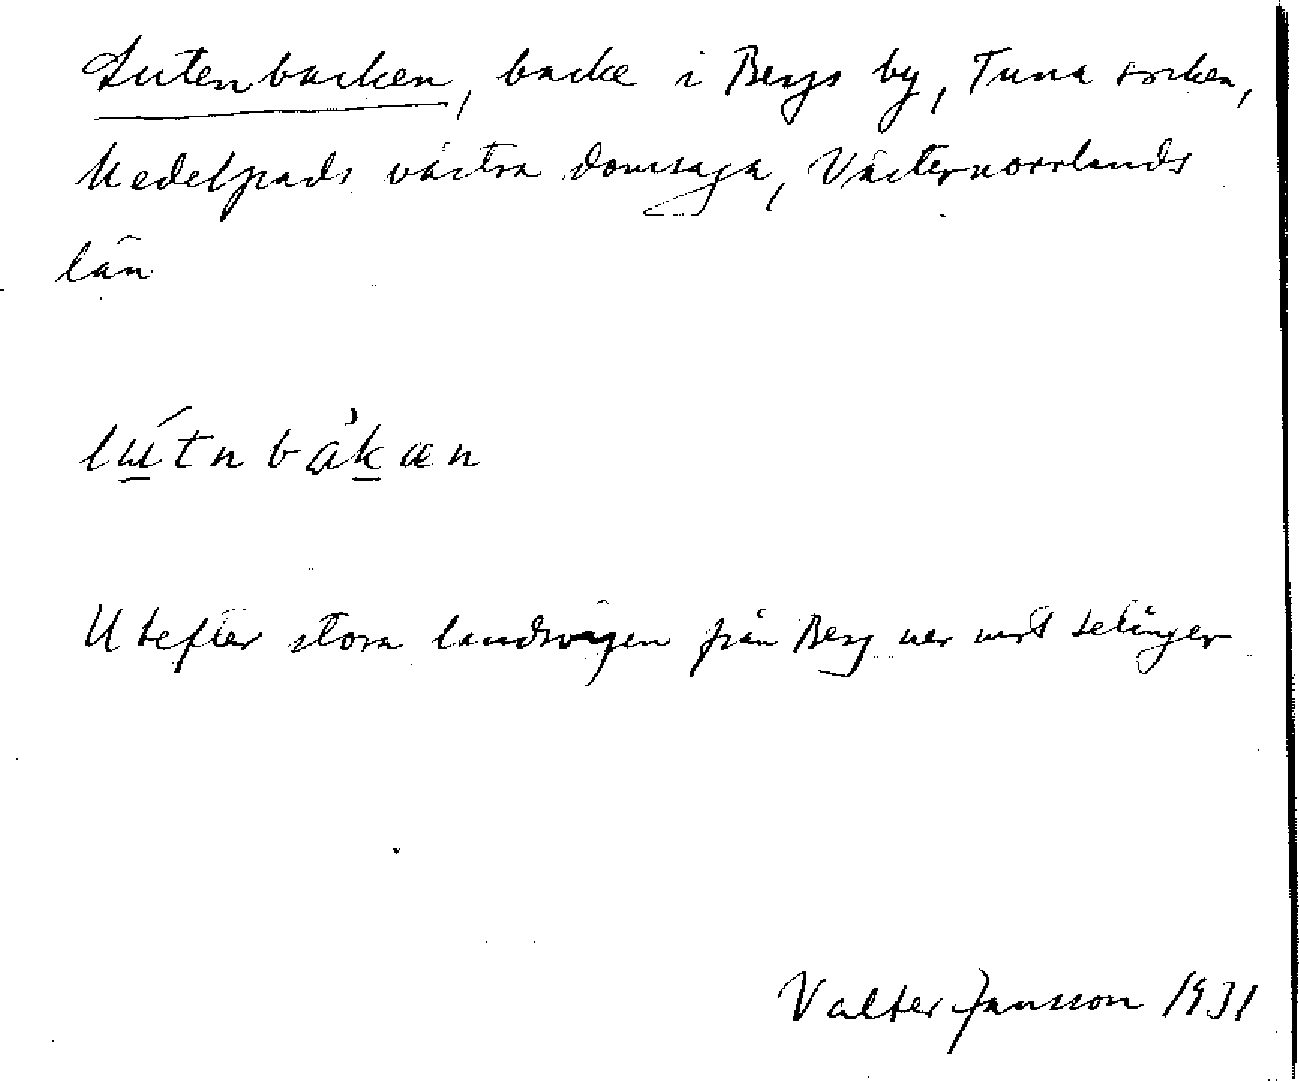 Lutenbacken, backe i Bergs by, Tuna socken,
Medelpads västra domsaga, Västernorrlands
län
lútnbàkæn
Utefter stora landsvägen från Berg ner mot Selånger
Valter Jansson 1931